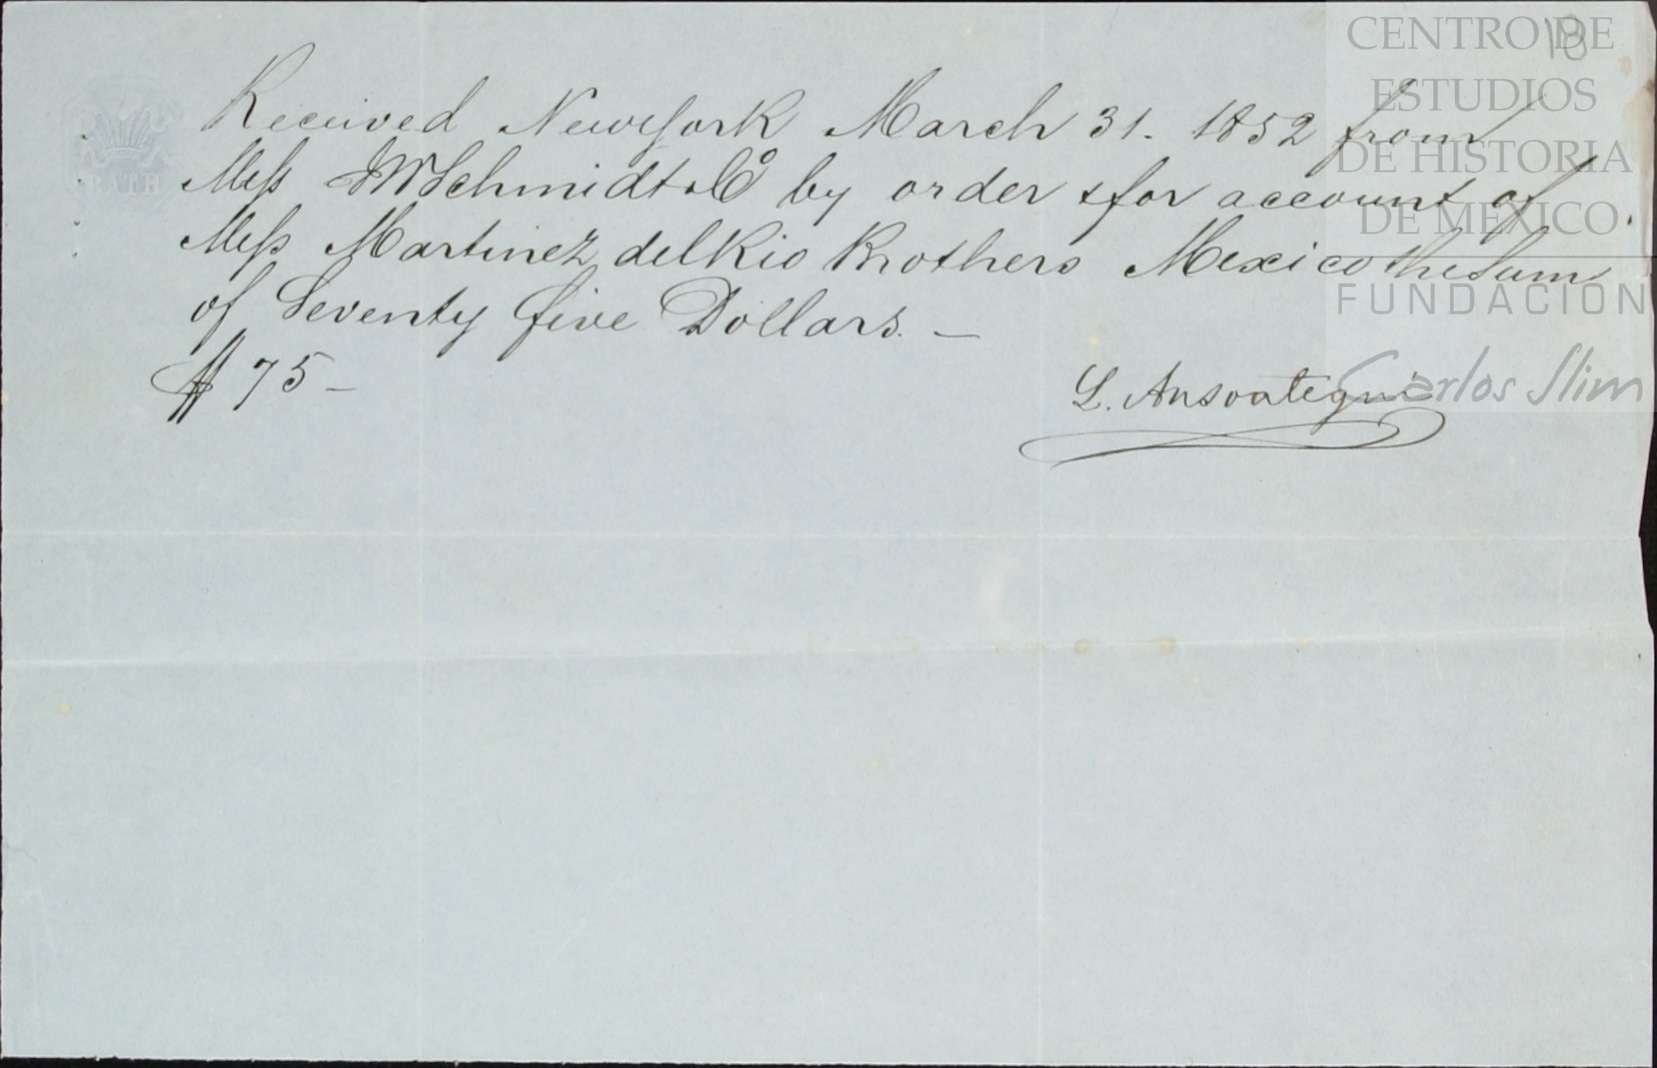 18
Received New York March 31. 1852 from
Mess JW Schmidt & Co by order & for account of
Mess Martinez del Rio Brothers Mexico the Sum
of Seventy five Dollars. —
$ 75 —
L. Ansoategui
BATH
CENTRO DE
ESTUDIOS
DE HISTORIA
DE MÉXICO
FUNDACIÓN
Carlos Slim